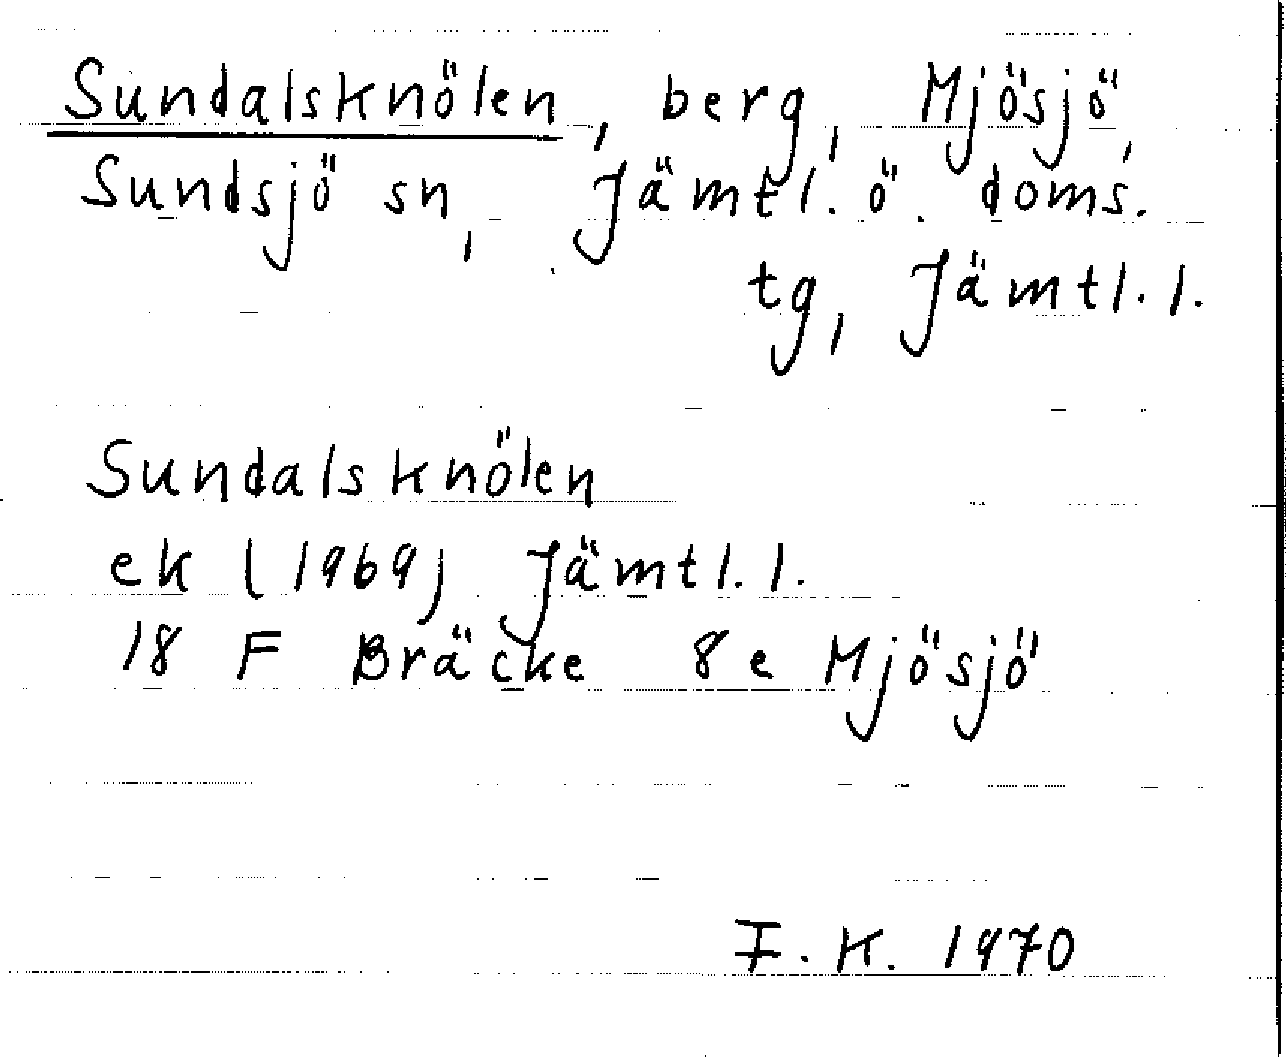 Sundalsknölen, berg, Mjösjö,
Sundsjö sn, Jämtl. ö. doms.
tg, Jämtl. l.
Sundalsknölen
ek (1969) Jämtl. l.
18 F Bräcke 8 e Mjösjö
F. K. 1970